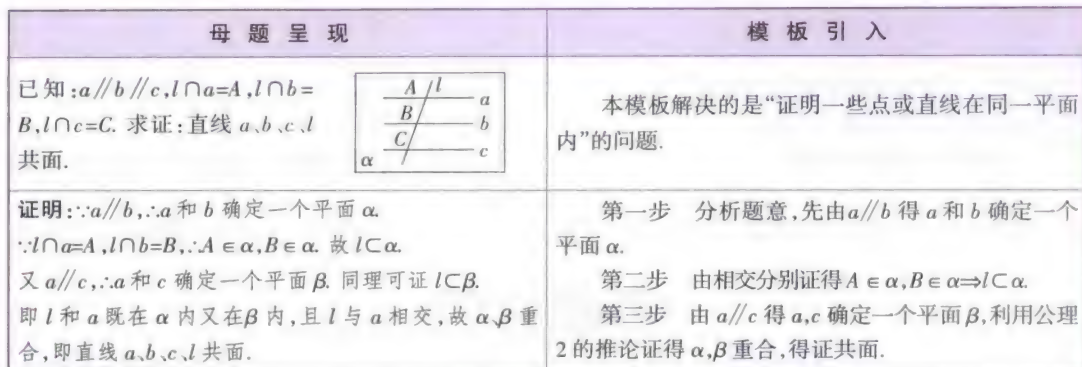 母题呈现
模板引入
已知:a∥b∥c,l∩a=A,l∩b=
B,l∩c=C. 求证:直线 a、b、c、l
共面.
A l
a
B
b
C
c
α
本模板解决的是“证明一些点或直线在同一平面
内”的问题.
证明:∵a∥b,∴a 和 b 确定一个平面 α.
∵l∩a=A,l∩b=B,∴A∈α,B∈α. 故 l⊂α.
又 a∥c,∴a 和 c 确定一个平面 β. 同理可证 l⊂β.
即 l 和 a 既在 α 内又在 β 内,且 l 与 a 相交,故 α、β 重
合,即直线 a、b、c、l 共面.
第一步 分析题意,先由 a∥b 得 a 和 b 确定一个
平面 α.
第二步 由相交分别证得 A∈α,B∈α⇒l⊂α.
第三步 由 a∥c 得 a,c 确定一个平面 β,利用公理
2 的推论证得 α,β 重合,得证共面.